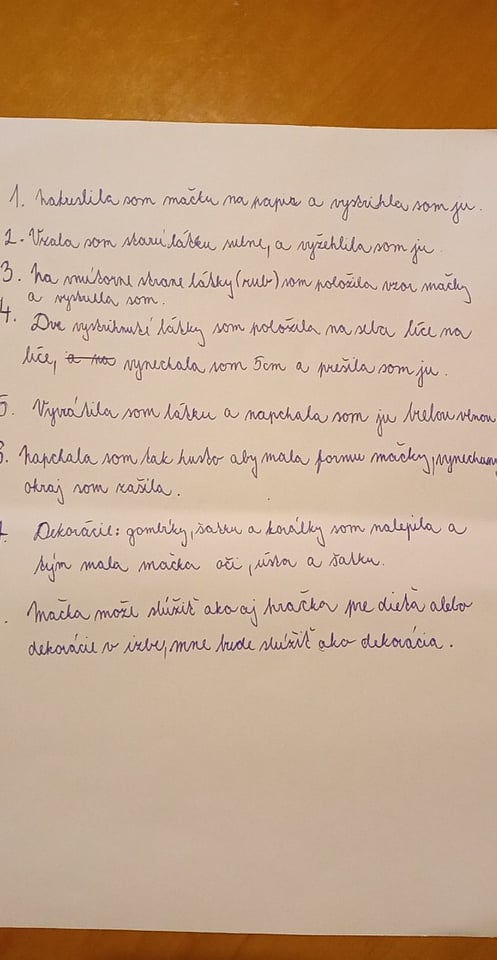 1. Nakreslila som mačku na papier a vystrihla som ju.
2. Vzala som starú látku sukne, a vyžehlila som ju.
3. Na vnútorne strane látky (rub) som položila vzor mačky
a vystrihla som.
4. Dve vystrihnuté látky som položila na seba líce na
líce, a na vynechala som 5cm a prešila som ju.
5. Vyvrátila som látku a napchala som ju bielou vlnou
6. Napchala som tak husto aby mala formu mačky, vynechaný
okraj som zašila.
7. Dekorácie: gombíky, šatku a korálky som nalepila a
tým mala mačka oči, ústa a šatku.
. Mačka može slúžiť ako aj hračka pre dieťa alebo
dekorácie v izbe, mne bude slúžiť ako dekorácia.